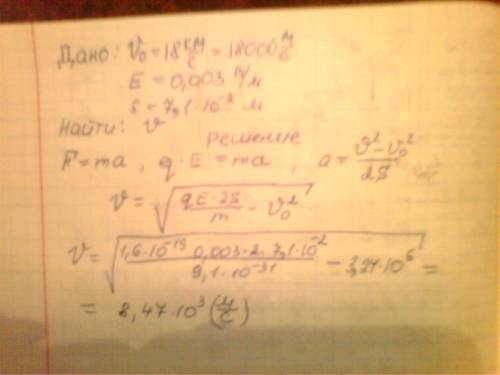 Дано: V₀ = 18 км/с = 18000 м/с
E = 0,003 В/м
S = 7,1·10⁻² м
Найти: v
Решение
F = ma , q·E = ma , a = (v² - v₀²)/2S
v = √(qE·2S/m - v₀²)
v = √(1,6·10⁻¹⁹·0,003·2·7,1·10⁻²/9,1·10⁻³¹ - 3,24·10⁶) =
= 8,47·10³ (м/с)